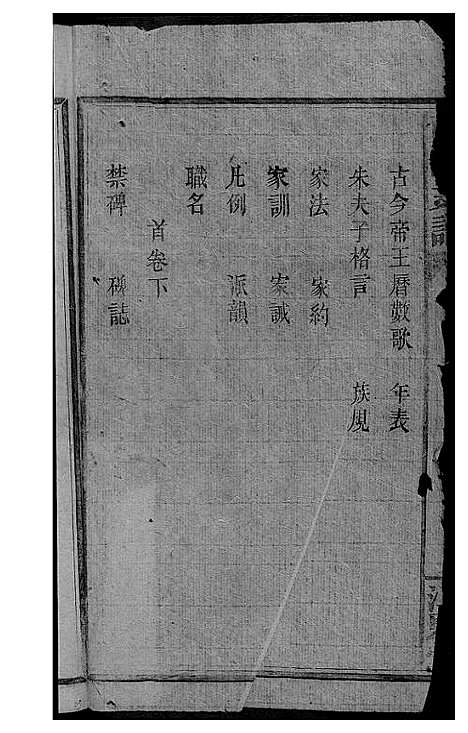 古今帝王曆數歌 年表
朱夫子格言 族規
家法 家約
家訓 家誡
凡例 派韻
職名
首卷下
禁碑 碑誌